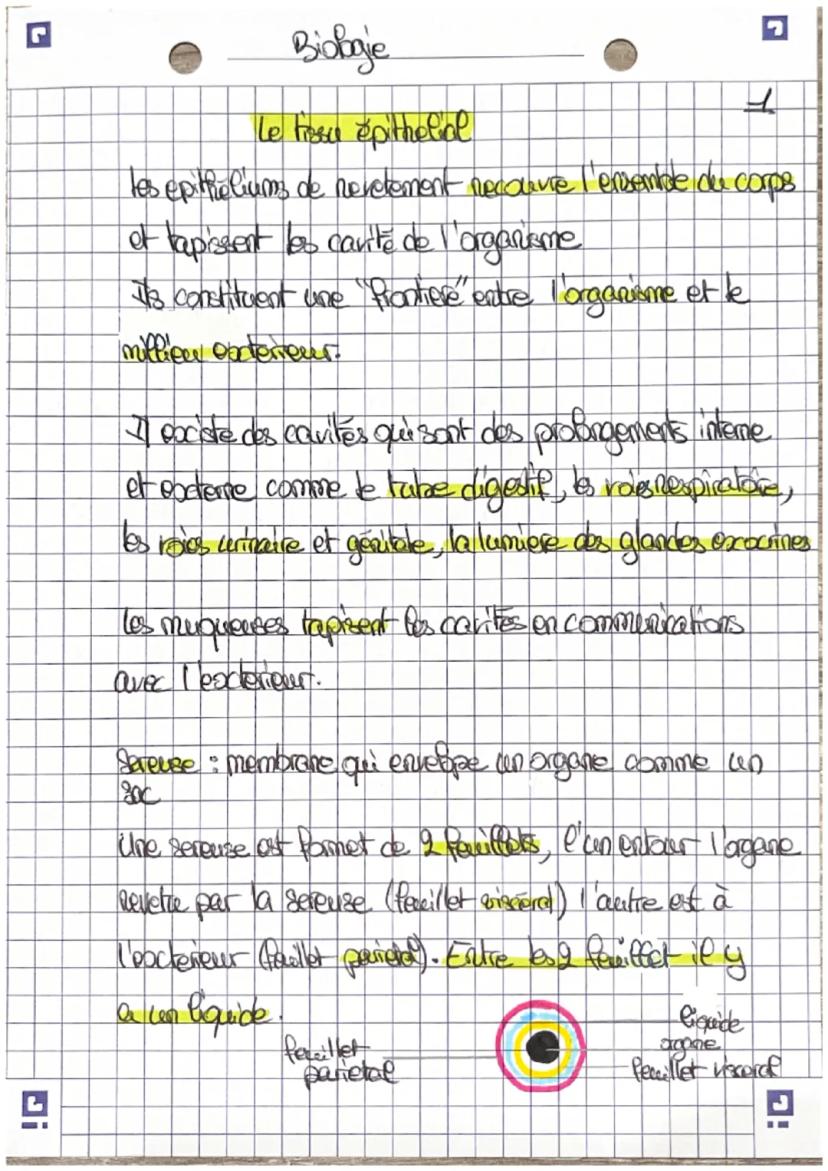 Biologie
1
Le tissu épithelial
Les epithéliums de revetement recouvre l'ensemble du corps
et tapissent les cavité de l'organisme
Ils constituent une "frontiere" entre l'organisme et le
millieu exterieur.
Il existe des cavités qui sont des prolongements interne
et externe comme le tube digestif, les voies respiratoire,
les voies urinaire et génitale, la lumiere des glandes exocrines
Les muqueuses tapisent les cavités en communications
avec l'exterieur.
Sereuse : membrane qui enveloppe un organe comme un
sac
Une sereuse est formet de 2 feuillets, l'un entour l'organe
revetue par la sereuse (feuillet viscéral) l'autre est à
l'exterieur (feuillet parietal). Entre les 2 feuillet il y
a un liquide.
feuillet
parietal
liquide
organe
feuillet visceral